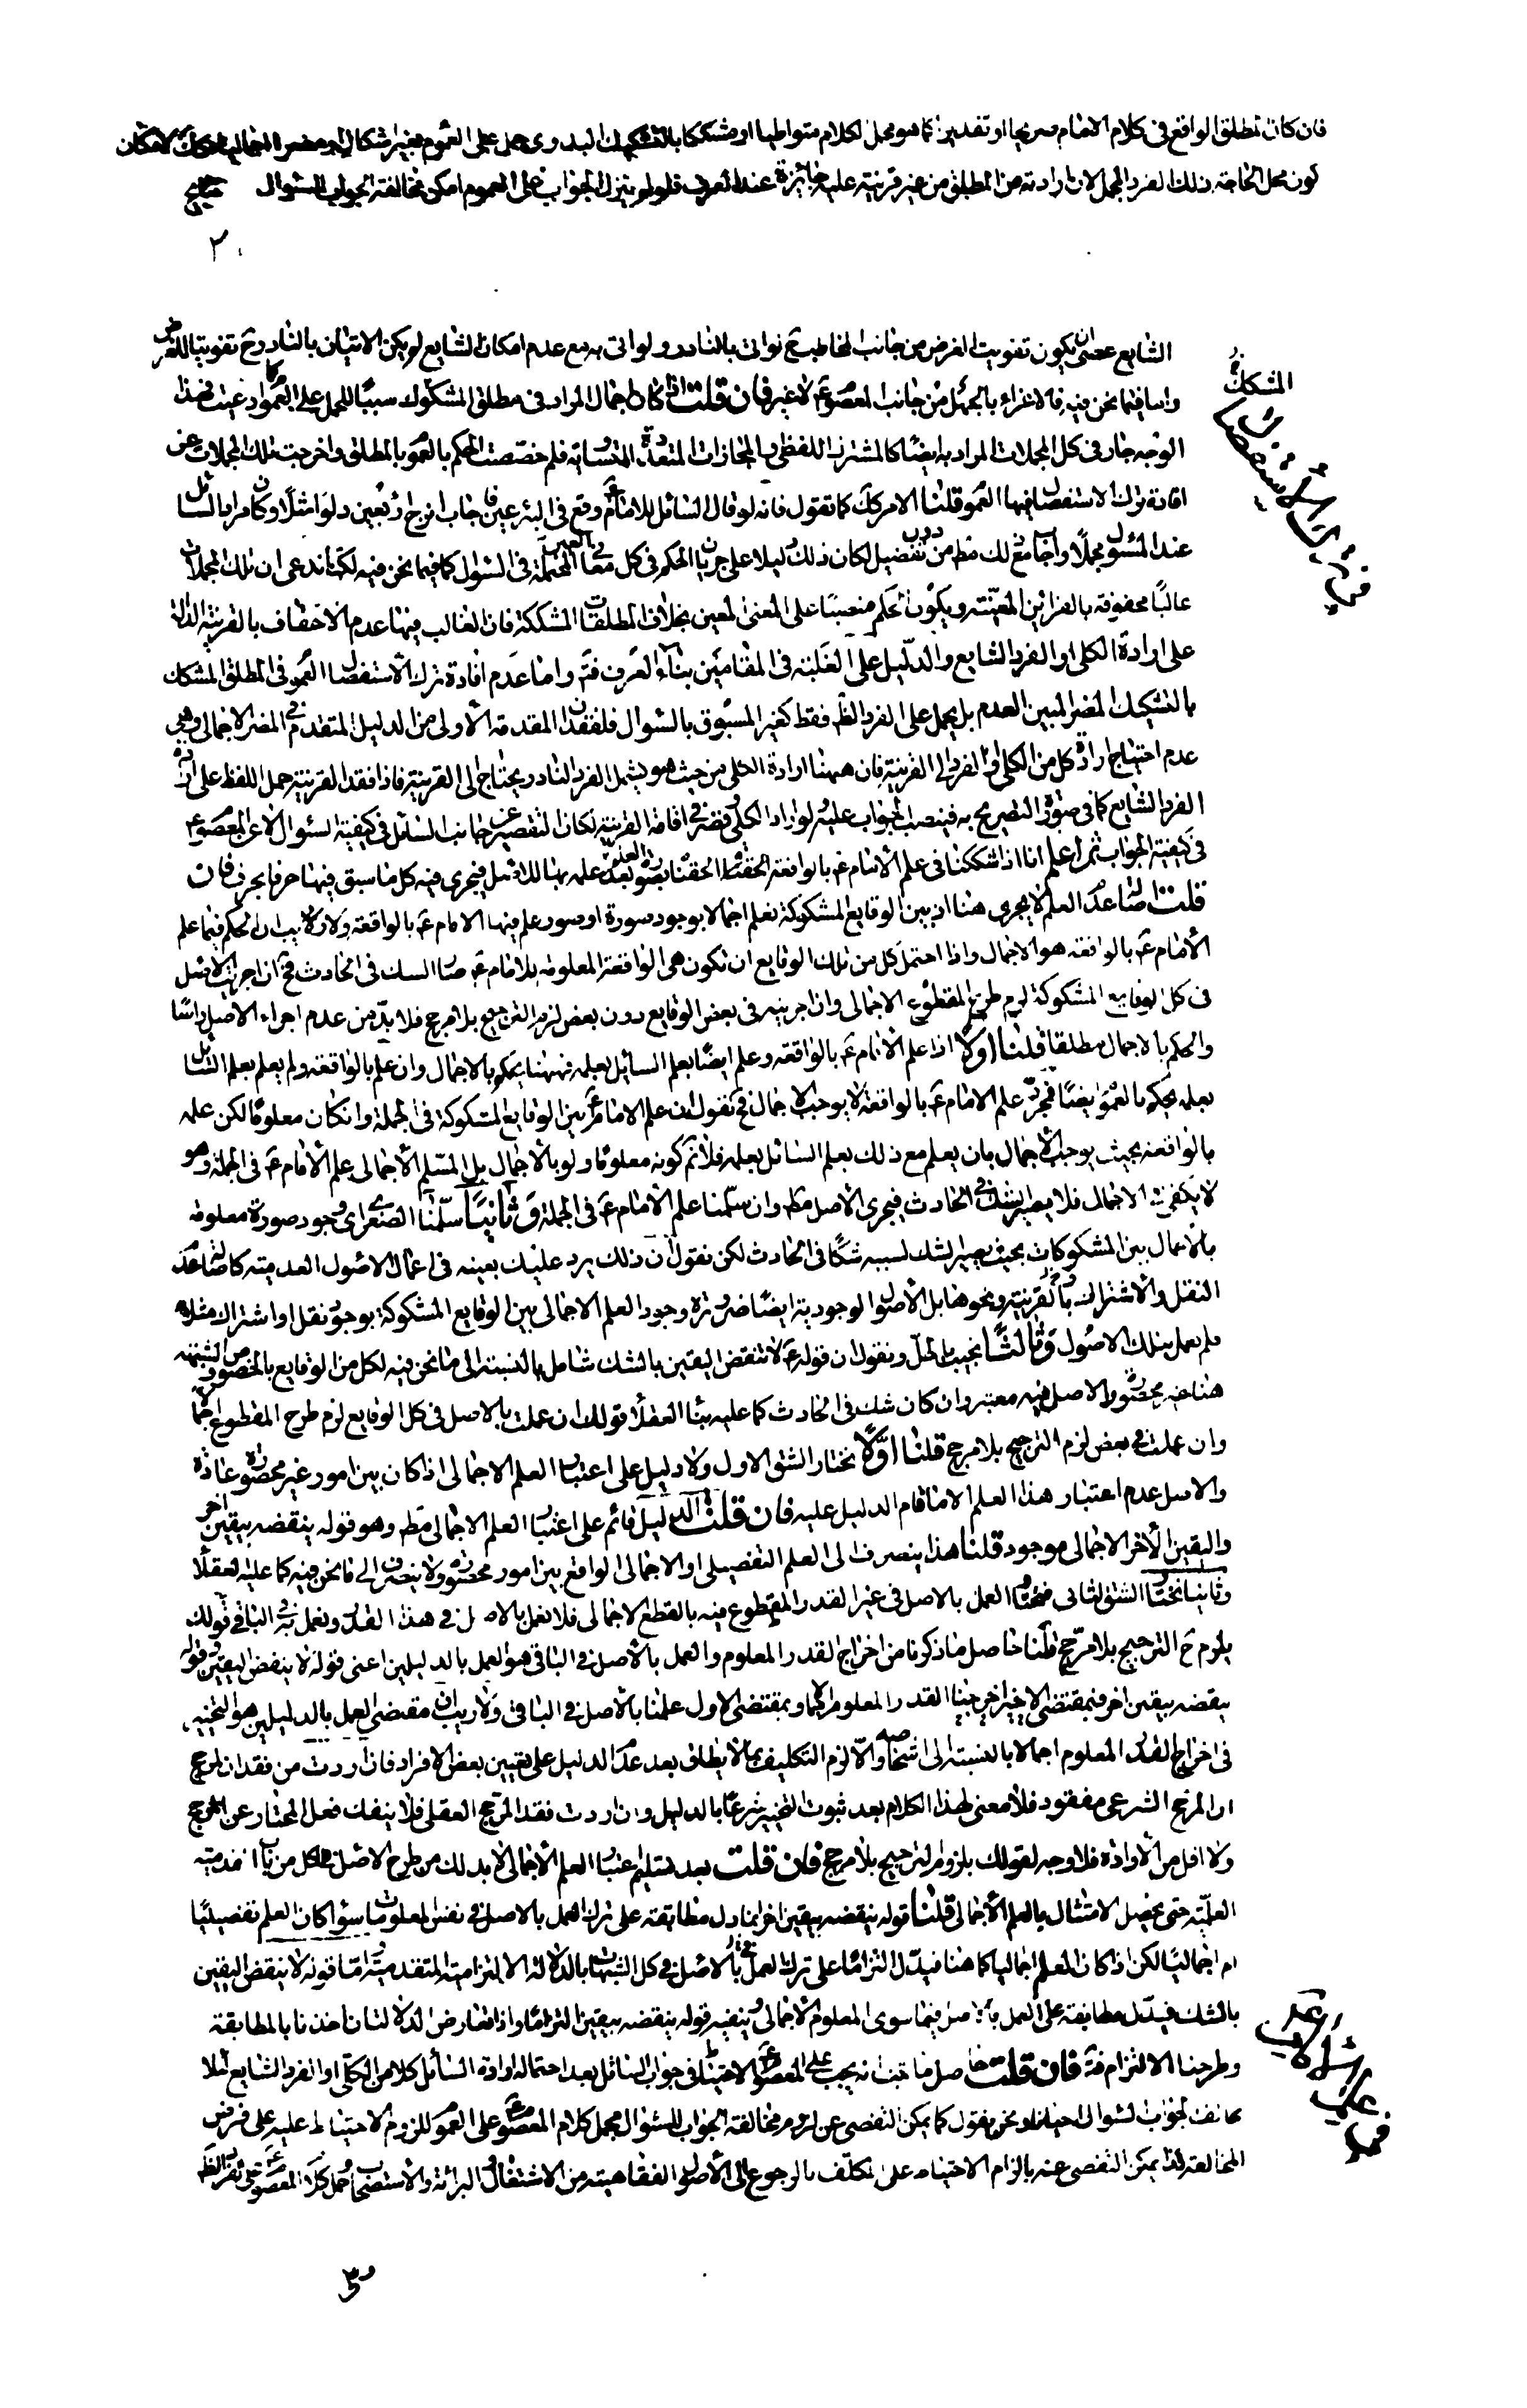 فان كان المطلق الواقع فى كلام الامام صريحا او تقديرا كما هو محل الكلام متواطيا او مشككا بالتشكيك البدوى حمل على العموم بغير اشكال
كون محل الحاجة ذلك الفرد المجمل لان ارادته من المطلق من غير قرينة عليه جائزة عند العرف فلو لم ينزل الجواب على العموم امكن مخالفة الجواب للسؤال
٢
الشايع عصى ان يكون تفويت الغرض من جانب المخاطب ح نواتى بالنادر ولو اتى به مع عدم امكان الشايع لم يكن الاتيان بالنادر ح تفويتا للغرض
واما فيما نحن فيه فالاغراء بالجهل من جانب المعصوم ع لا غير فان قلت اذا كان اجمال المراد فى مطلق المشكوك سببًا للحمل على العموم فهذا
الوجه جار فى كل المجملات المراد به ايضًا كالمشترك اللفظى والمجازات المتعددة المتساوية فلم خصصت الحكم بالعموم بالمطلق واخرجت تلك المجملات عن
افادة ترك الاستفصال فيها العموم قلنا الامر كك كما تقول فانه لو قال السائل للامام ع وقع فى البئر عين فاجاب انزح اربعين دلوا مثلًا وكان مراد السائل
عند المسئول مجملًا واجاب مع ذلك مط من دون تفصيل لكان ذلك دليلا على جريان الحكم فى كل معانى العين المحتملة فى السؤال كما فيما نحن فيه لكنا ندعى ان تلك المجملات
غالبًا محفوفة بالقراين المعينة ويكون الحكم منصبًا على المعنى المعين بخلاف المطلقات المشككة فان الغالب فيها عدم الاحتفاف بالقرينة الدالة
على ارادة الكلى او الفرد الشايع والدليل على الغلبة فى المقامين بناء العرف فتم واما عدم افادة ترك الاستفصال العموم فى المطلق المشكك
بالتشكيك المضر المبين العدم بل يحمل على الفرد الظ فقط كغير المسبوق بالسؤال فلفقدان المقدمة الاولى من الدليل المتقدم فى المضر الاجمالى وهى
عدم احتياج ارادة كل من الكلى او الفرد الى القرينة فان ههنا ارادة الكلى من حيث هو يشمل الفرد النادر يحتاج الى القرينة فاذا فقد القرينة حمل اللفظ على ارادة
الفرد الشايع كما فى صورة التصريح به فينصب الجواب عليه ولو اراد الكلى وقصر فى اقامة القرينة لكان التقصير من جانب السائل فى كيفية السئوال لا عن المعصوم ع
فى كيفية الجواب ثم اعلم انا اذا شككنا فى علم الامام ع بالواقعة الحقنا بصورة العلم بعدم علمه بها للاصل فيجرى فيه كل ما سبق فيها حرفا بحرف فان
قلت اصالة عدم العلم لا يجرى هنا اذ بين الوقايع المشكوكة نعلم اجمالا بوجود صورة او صور علم فيها الامام ع بالواقعة ولا ريب ان الحكم فيما علم
الامام ع بالواقعة هو الاجمال واذا احتمل كل من تلك الوقايع ان تكون هى الواقعة المعلومة للامام ع صار الشك فى الحادث فح ان اجريت الاصل
فى كل الوقايع المشكوكة لزم طرح المقطوع الاجمالى وان اجريته فى بعض الوقايع دون بعض لزم الترجيح بلا مرجح فلا بد من عدم اجراء الاصل راسًا
والحكم بالاجمال مطلقا قلنا اولًا اذا علم الامام ع بالواقعة وعلم ايضًا بعلم السايل بعلمه فههنا يحكم بالاجمال وان علم بالواقعة ولم يعلم بعلم السائل
بعلمه يحكم بالعموم ايضًا فمجرد علم الامام ع بالواقعة لا يوجب الاجمال فح نقول ان علم الامام ع بين الوقايع المشكوكة فى الجملة وان كان معلومًا لكن علمه
بالواقعة بحيث يوجب الاجمال بان يعلم مع ذلك بعلم السائل بعلمه فلا نم كونه معلومًا ولو بالاجمال بل المسلم الاجمالى علم الامام ع فى الجملة وهو
لا يكفى فى الاجمال فلا يصير الشك فى الحادث فيجرى الاصل مط وان سلمنا علم الامام ع فى الجملة وثانيًا سلمنا الصغرى اى وجود صورة معلومة
بالاجمال بين المشكوكات بحيث يصير الشك لسببه شكًا فى الحادث لكن نقول ان ذلك يرد عليك بعينه فى اعمال الاصول العدمية كاصالة عدم
النقل والاشتراك والقرينة ونحوها بل الاصول الوجودية ايضًا ضرورة وجود العلم الاجمالى بين الوقايع المشكوكة بوجود نقل او اشتراك مثلا
فلم يعمل بتلك الاصول وثالثًا نجيب بالحل ونقول ان قوله ع لا تنقض اليقين بالشك شامل بالنسبة الى ما نحن فيه لكل من الوقايع بالخصوص والشبهة
هنا غير محصورة والاصل فيه معتبر وان كان شك فى الحادث كما عليه بناء العقلاء قولك ان عملت بالاصل فى كل الوقايع لزم طرح المقطوع اجمالًا
وان عملت فى بعض لزم الترجيح بلا مرجح قلنا اولًا نختار الشق الاول ولا دليل على اعتبار العلم الاجمالى اذا كان بين امور غير محصورة عادة
والاصل عدم اعتبار هذا العلم الا ما قام الدليل عليه فان قلت الدليل قائم على اعتبار العلم الاجمالى مط وهو قوله ينقضه بيقين اخر
واليقين الاخر الاجمالى موجود قلنا هذا ينصرف الى العلم التفصيلى او الاجمالى الواقع بين امور محصورة ولا ينصرف الى ما نحن فيه كما عليه العقلاء
وثانيا نختار الشق الثانى فنختار العمل بالاصل فى غير القدر المقطوع فيه بالقطع الاجمالى فلا نعمل بالاصل فى هذا القدر ونعمل به فى الباقى قولك
يلزم ح الترجيح بلا مرجح قلنا حاصل ما ذكرنا من اخراج القدر المعلوم والعمل بالاصل فى الباقى هو العمل بالدليلين اعنى قوله لا ينقض اليقين وقوله
ينقضه بيقين اخر فبمقتضى الاخير اخرجنا القدر المعلوم اجمالا وبمقتضى الاول عملنا بالاصل فى الباقى ولا ريب ان مقتضى العمل بالدليلين هو التخيير
فى اخراج القدر المعلوم اجمالا بالنسبة الى اشخاصه والا لزم التكليف بما لا يطاق بعد عدم الدليل على تعيين بعض الافراد فان اردت من فقدان المرجح
ان المرجح الشرعى مفقود فلا معنى لهذا الكلام بعد ثبوت التخيير شرعًا بالدليل وان اردت فقد المرجح العقلى فلا ينفك فعل المختار عن المرجح
ولا اقل من الارادة فلا وجه لقولك بلزوم الترجيح بلا مرجح فان قلت بعد تسليم اعتبار العلم الاجمالى لا بد لك من طرح الاصل فى الكل من باب المقدمية
العلمية حتى يحصل الامتثال بالعلم الاجمالى قلنا قوله ينقضه بيقين اخر انما دل مطابقة على ترك العمل بالاصل فى نفس المعلومات سواء كان العلم تفصيليًا
ام اجماليًا لكن اذا كان العلم اجماليا كما هنا فيدل التزامًا على ترك العمل بالاصل فى كل الشبهات بالدلالة الالتزامية المقدمية اما قوله لا ينقض اليقين
بالشك فيدل مطابقة على العمل بالاصل فيما سوى المعلوم الاجمالى وينفيه قوله ينقضه بيقين التزامًا واذا تعارض الدلالتان اخذنا بالمطابقة
وطرحنا الالتزام فتم فان قلت حاصل ما انه يجب على المعصوم ع الاحتياط فى جواب السائل بعد احتماله ارادة السائل كلا من الكلى او الفرد الشايع لئلا
يخالف الجواب السؤال احيانا ونحن نقول كما يمكن التفصى عن لزوم مخالفة الجواب للسؤال بحمل كلام المعصوم ع على العموم للزوم الاحتياط عليه على فرض
المخالفة كذا يمكن التفصى عنه بالزام الاحتياط على المكلف بالرجوع الى الاصول الفقاهية من الاشتغال والبرائة والاستصحاب وحمل كلام المعصوم ع على الفرد الظ
المشكك
فى ترك الاستفصال
٣